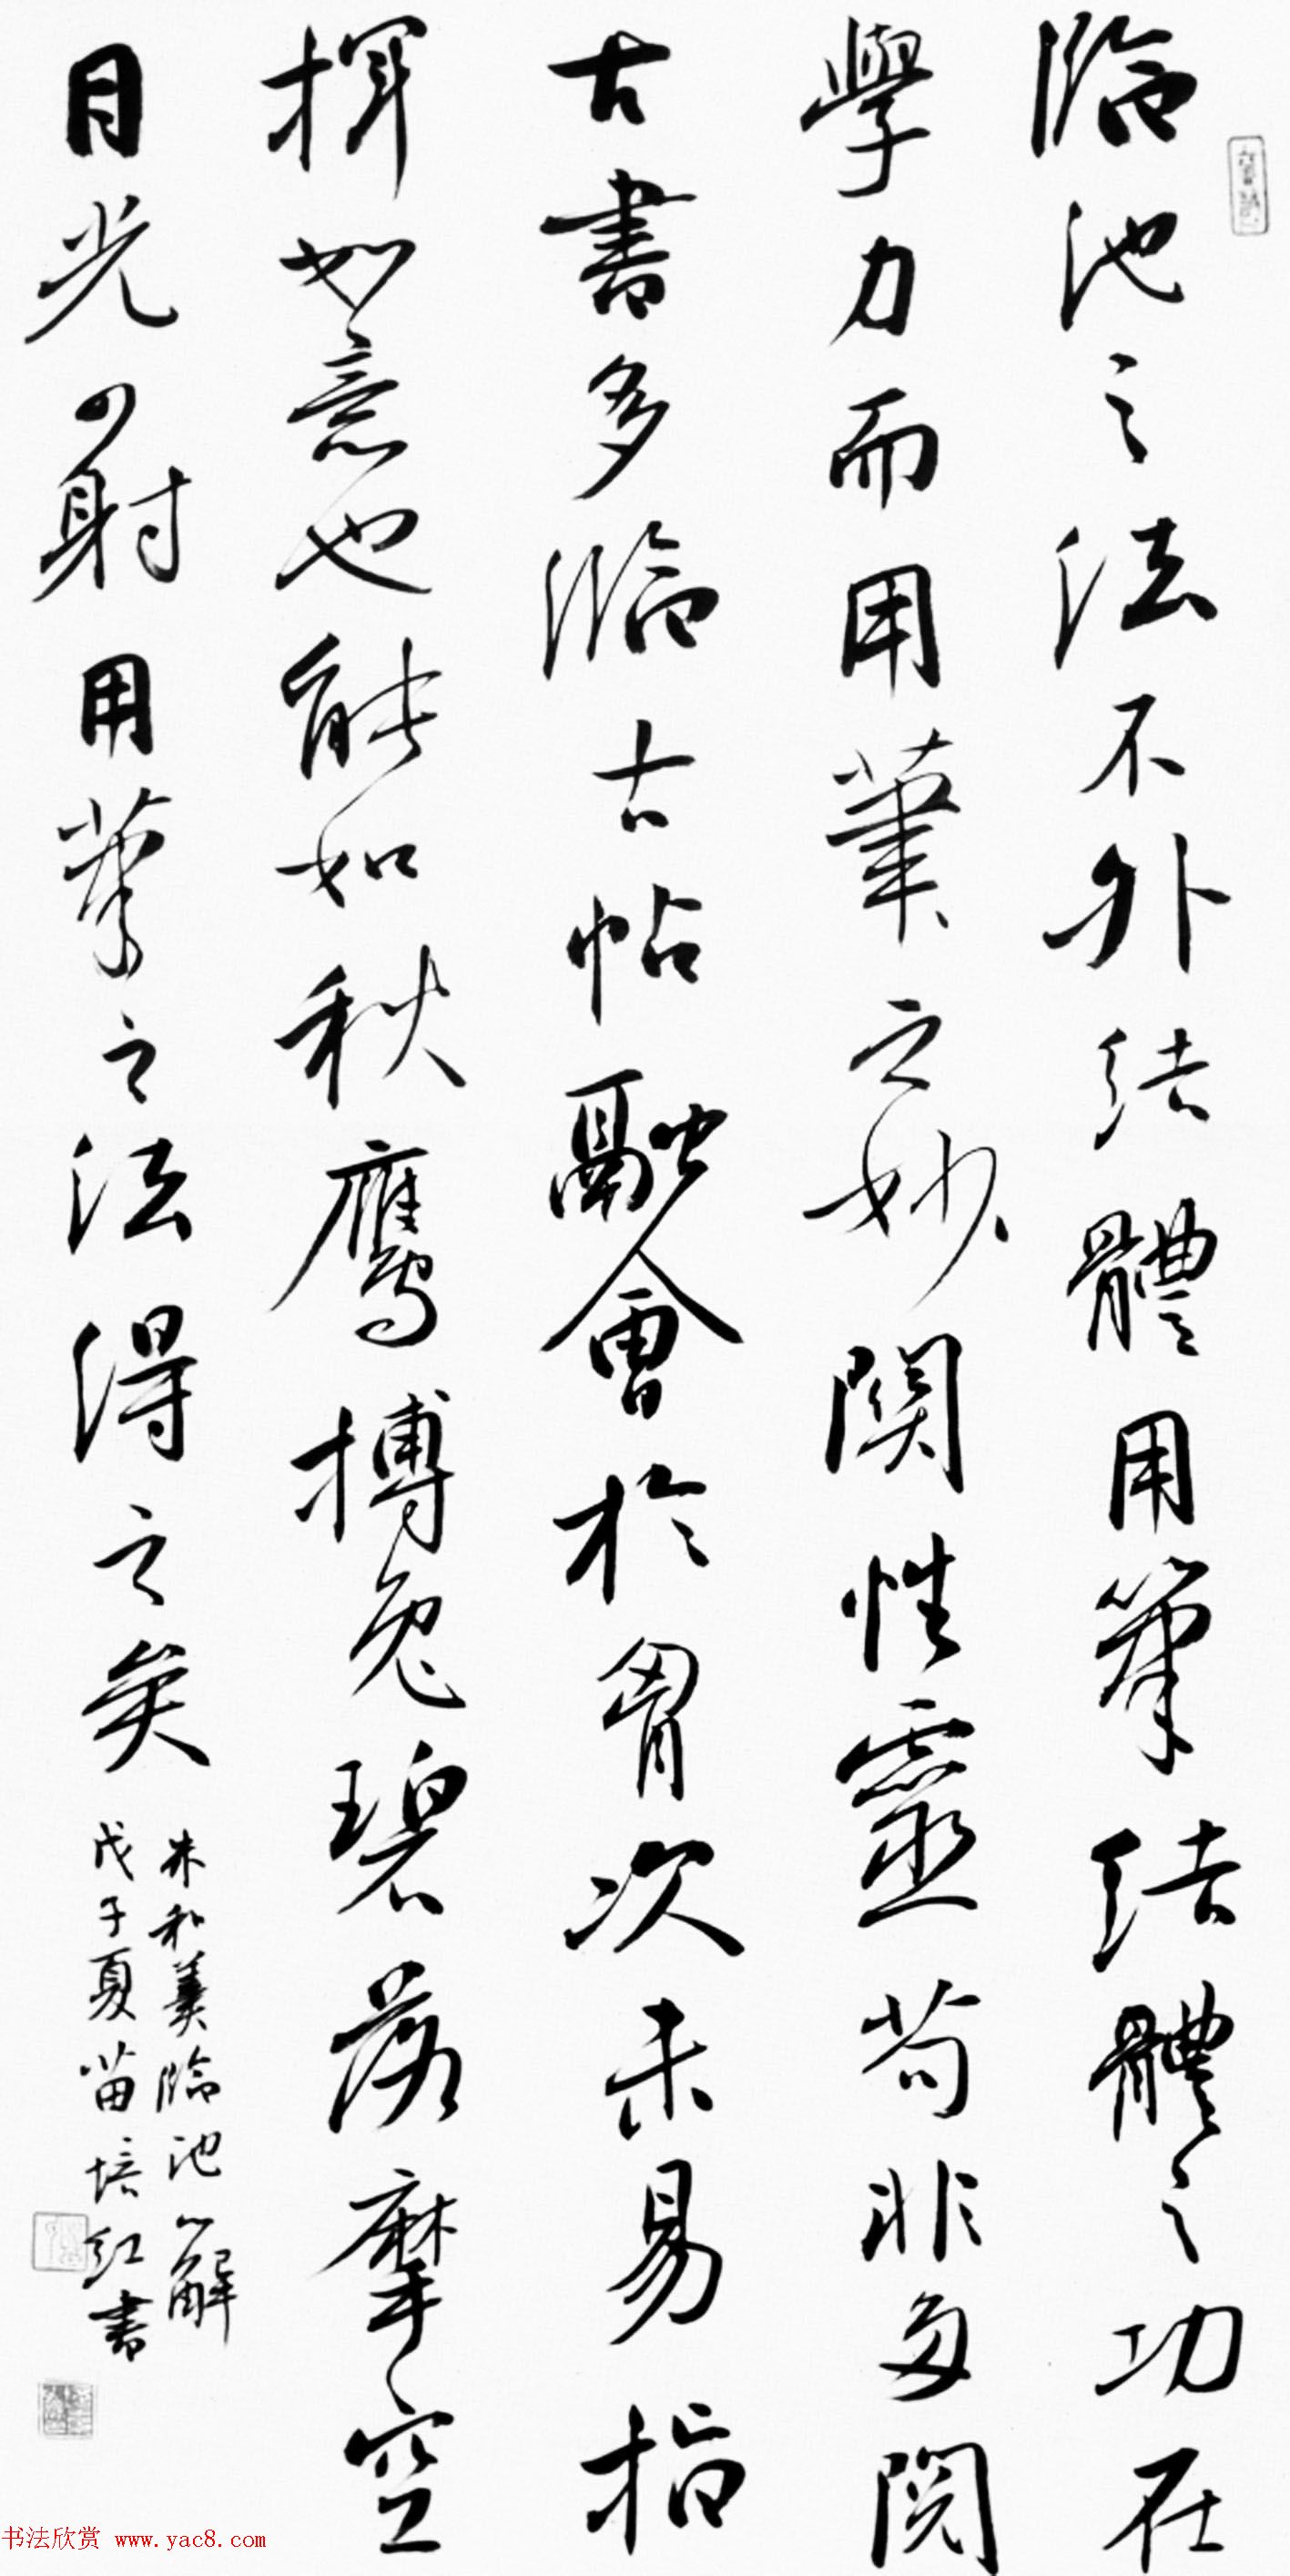 臨池之法不外結體用筆結體之功在
學力而用筆之妙關性靈苟非多閱
古書多臨古帖融會於胷次未易指
揮如意也能如秋鷹搏兔碧落摩空
目光四射用筆之法得之矣
朱和羹臨池心解
戊子夏苗培紅書
书法欣赏 www.yac8.com